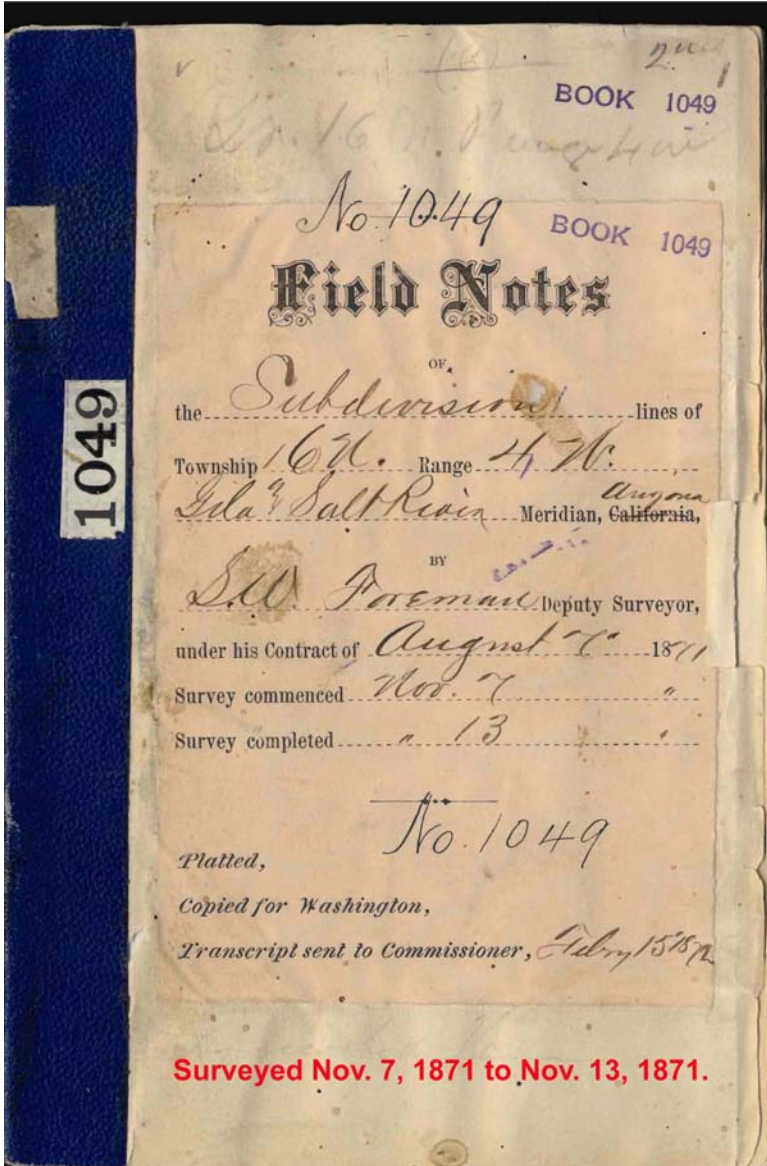 2nd
BOOK 1049
16 N. Range 4 W
No. 1049
BOOK 1049
Field Notes
OF
the Subdivision lines of
Township 16 N. Range 4 W.
Gila & Salt River Meridian, California, Arizona
BY
S.W. Foreman Deputy Surveyor,
under his Contract of August 7" 1871
Survey commenced Nov. 7 "
Survey completed " 13 "
1049
No. 1049
Platted,
Copied for Washington,
Transcript sent to Commissioner, Febry 15" 1872
Surveyed Nov. 7, 1871 to Nov. 13, 1871.